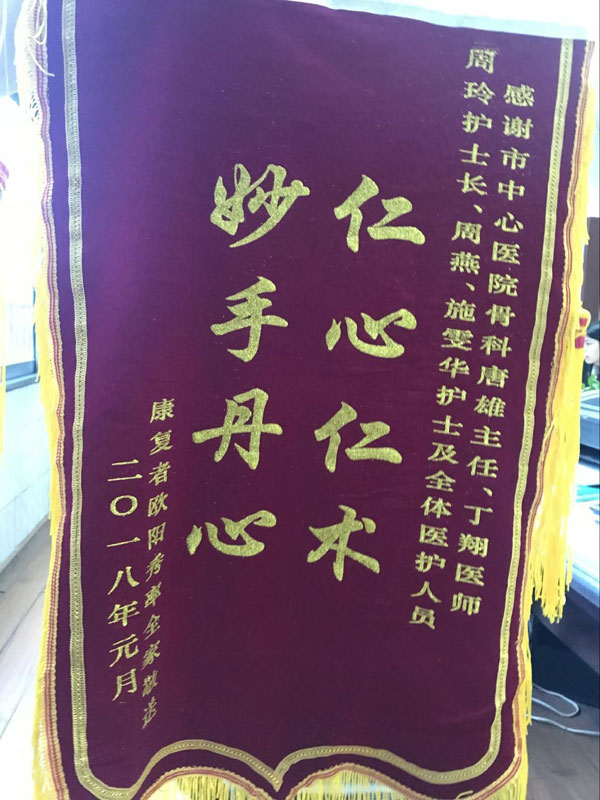 感谢市中心医院骨科唐雄主任、丁翔医师
周玲护士长、周燕、施雯华护士及全体医护人员
仁心仁术
妙手丹心
康复者欧阳秀率全家敬送
二〇一八年元月